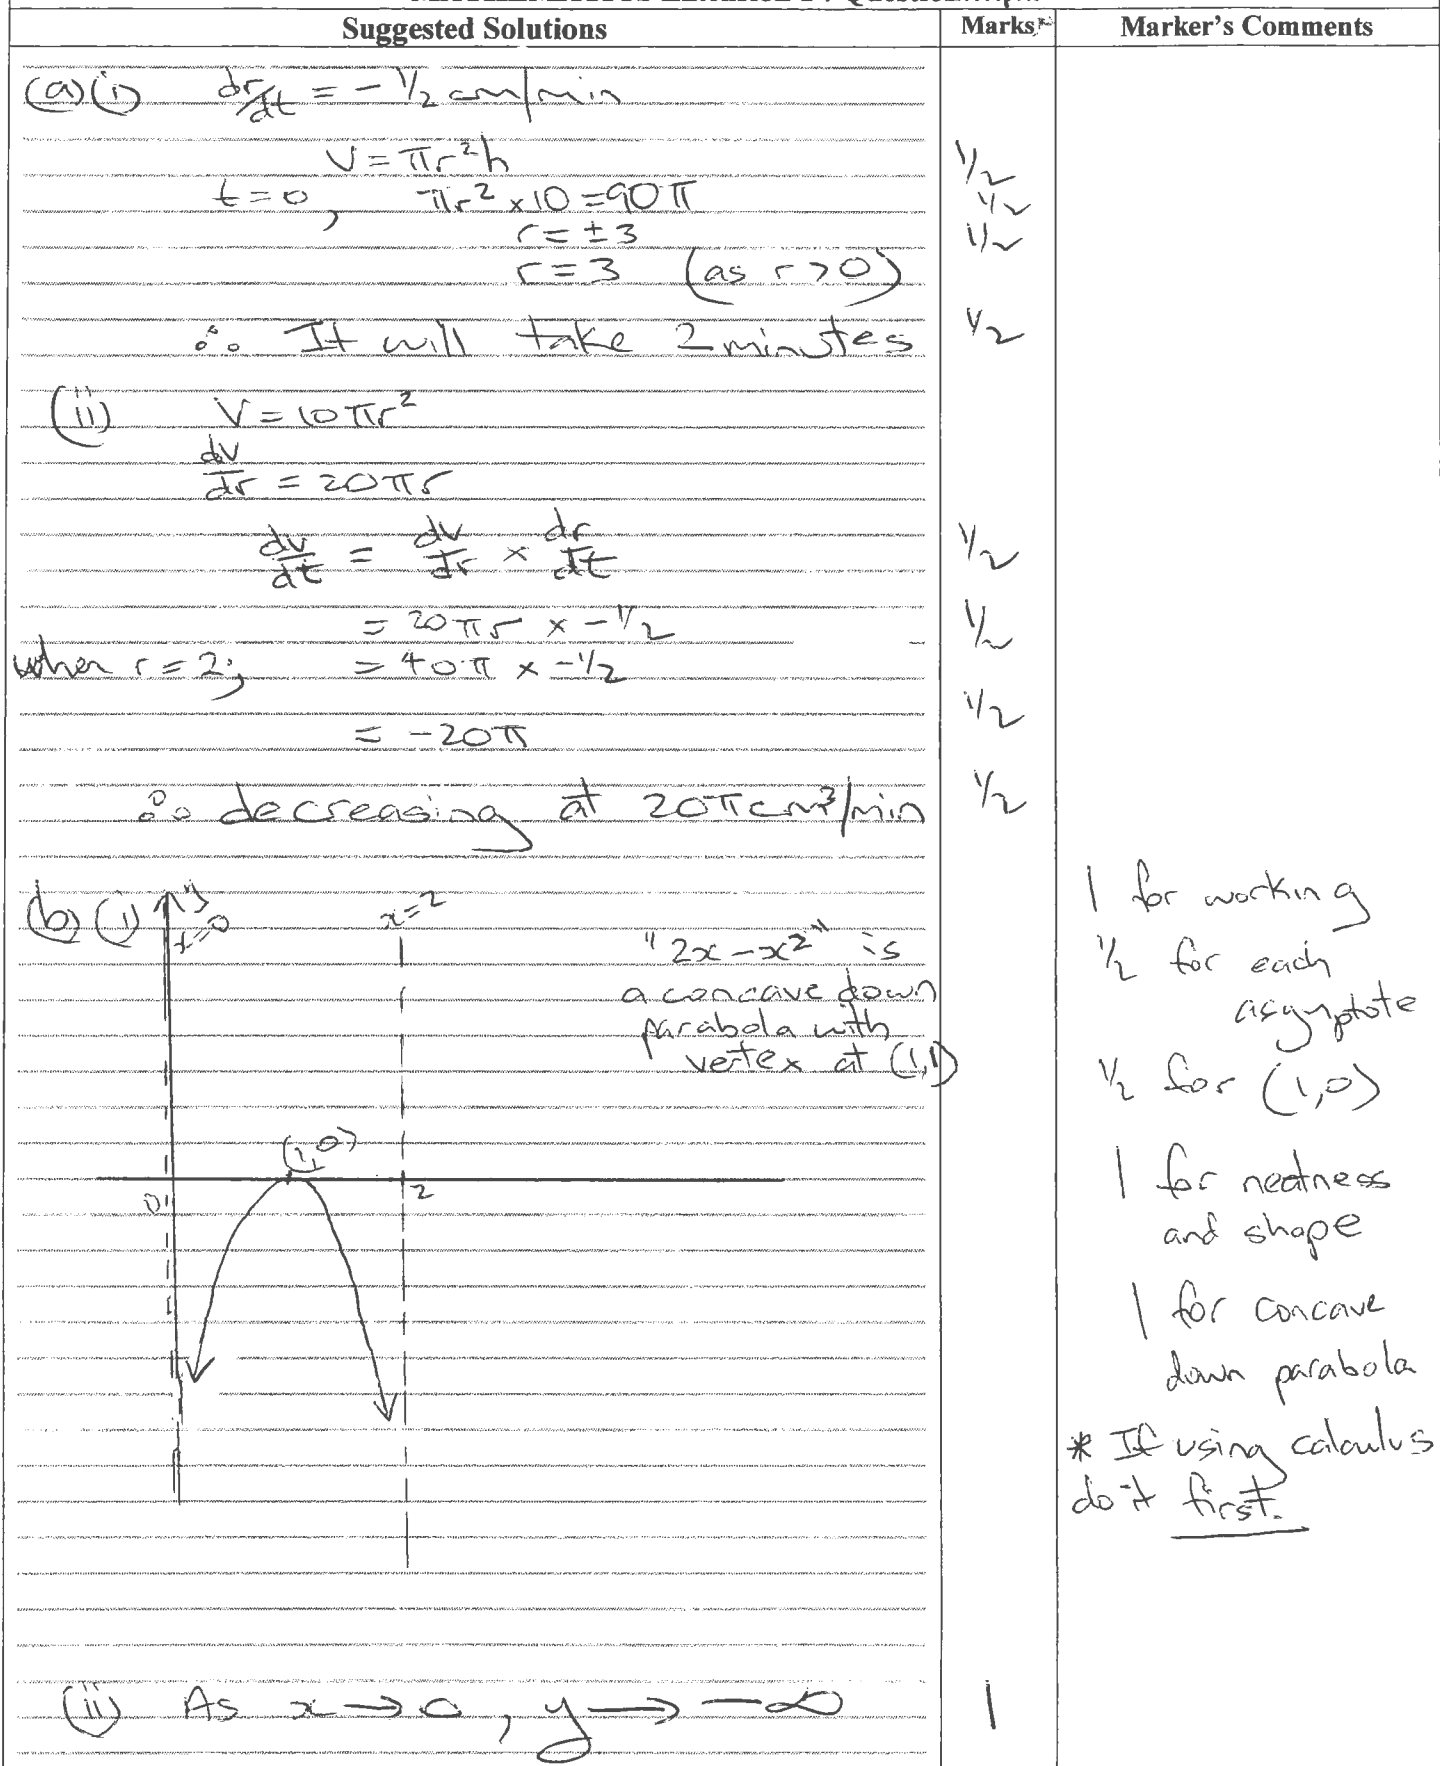 Suggested Solutions Marks Marker's Comments
(a)(i) dr/dt = - 1/2 cm/min
V = πr²h 1/2
t=0, πr² × 10 = 90π 1/2
r = ± 3 1/2
r = 3 (as r > 0)
∴ It will take 2 minutes 1/2
(ii) V = 10πr²
dV/dr = 20πr
dv/dt = dv/dr × dr/dt 1/2
= 20πr × -1/2 1/2
when r = 2; = 40π × -1/2
= -20π 1/2
∴ decreasing at 20π cm³/min 1/2
(b)(i) y
x=0
x=2
"2x - x²" is
a concave down
parabola with
vertex at (1,1)
(1,0)
0 2
1 for working
1/2 for each
asymptote
1/2 for (1,0)
1 for neatness
and shape
1 for concave
down parabola
* If using calculus
do it first.
(ii) As x → 0, y → -∞ 1